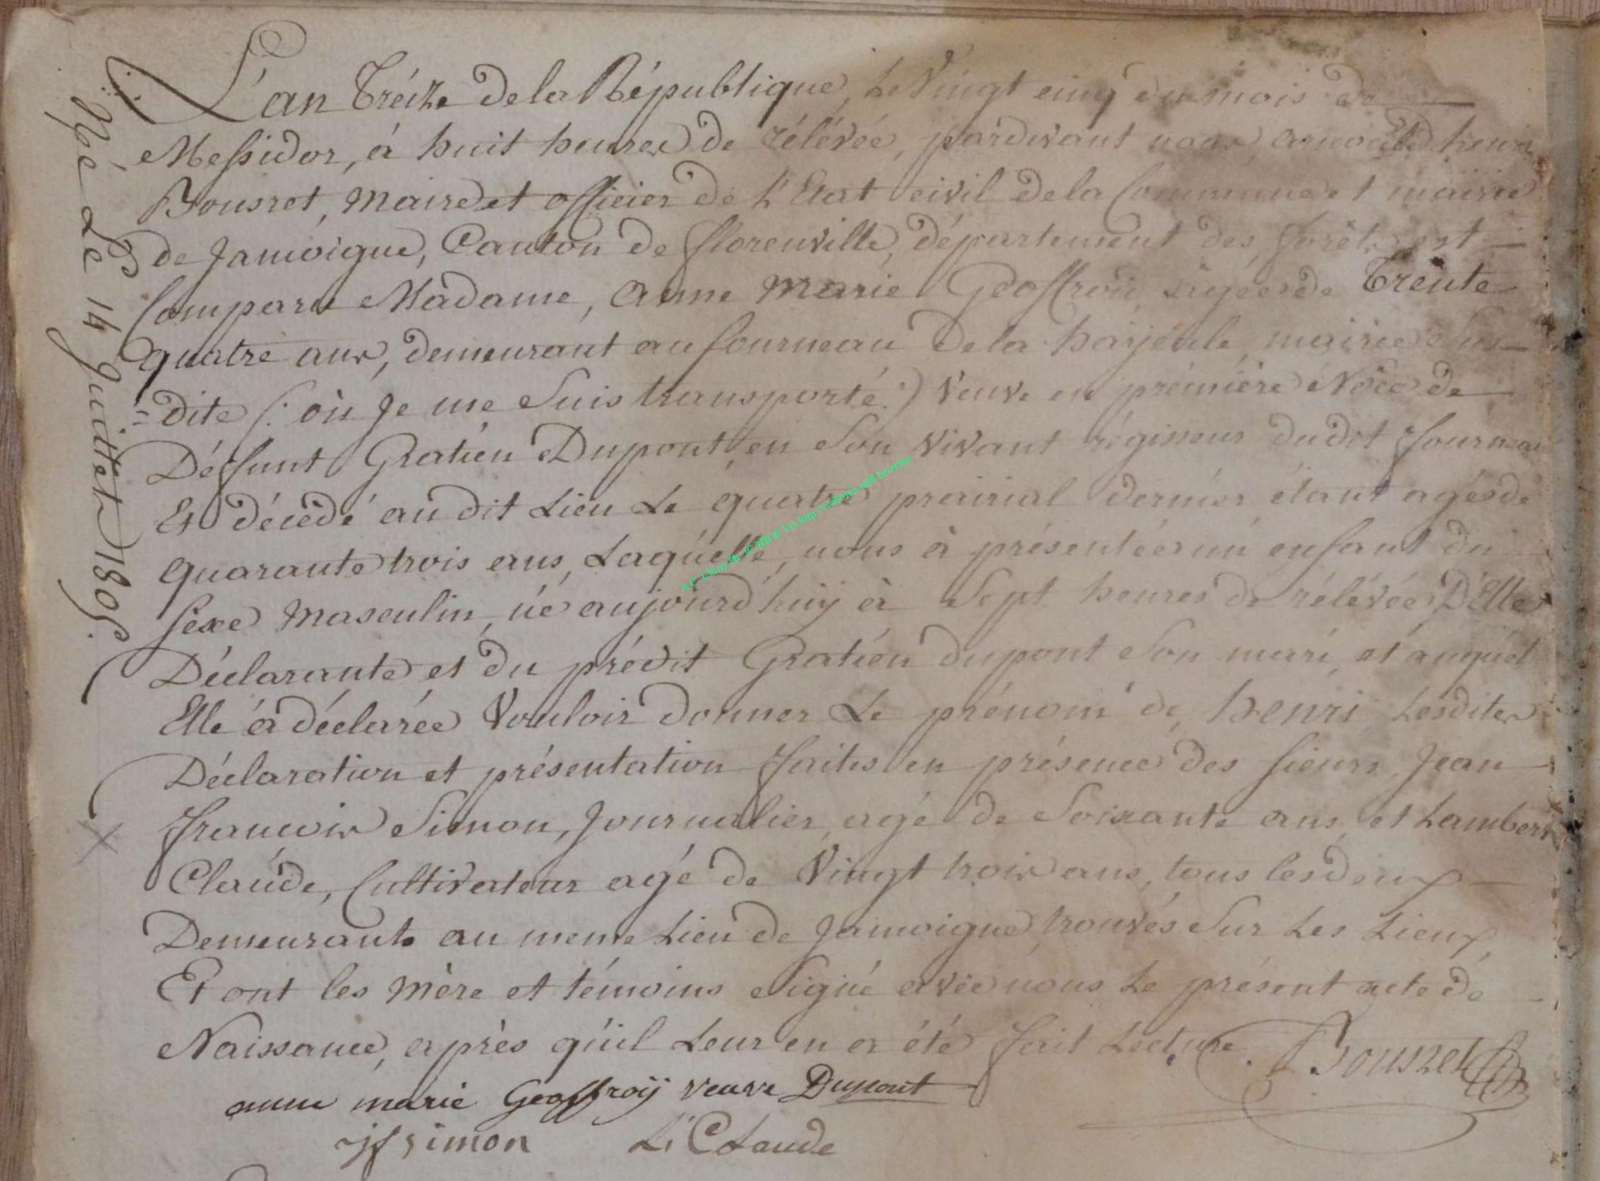 Né Le 14 Juillet 1805.
L'an Tréize de la République, Le Vingt cinq du mois de
Messidor, à huit heures de rélévée, pardevant nous henri
Bousret, Maire et officier de L'Etat civil de la Commune et mairie
de Jamoigne, Canton de florenville, département des forêts, est
Comparu Madame, Anne Marie Geoffroy, agée de Trente
quatre ans, demeurant au fourneau De la hayeule, mairie Sus-
=dite (: où Je me Suis transporté :) Veuve en prémière Noce de
Défunt Gratién Dupont en Son Vivant régisseur dudit fourneau
Et décédé au dit Lieu Le quatre prairial dernier étant agé de
quarante trois ans, Laquelle, nous à présentée un enfant du
Sexe Masculin, né aujourd'huÿ à Sept heures de rélévée, D'Elle
Déclarante et du prédit Gratién dupont Son mari, et auquel
Elle à déclarée Vouloir donner Le prénom de henri Lesdites
Déclaration et présentation faites en présence des Sieurs Jean
françois Simon, Journalier, agé de Soixante ans, et Lambert
Claude, Cultivateur agé de Vingt trois ans, tous les deux
Demeurants au meme Lieu de Jamoigne trouvés Sur Les Lieux,
Et ont les Mère et témoins Signé avec nous Le présent acte de
Naissance, après qu'il Leur en a été fait Lecture. Bousret
anne marie Geoffroÿ veuve Dupont
jf simon L. Claude